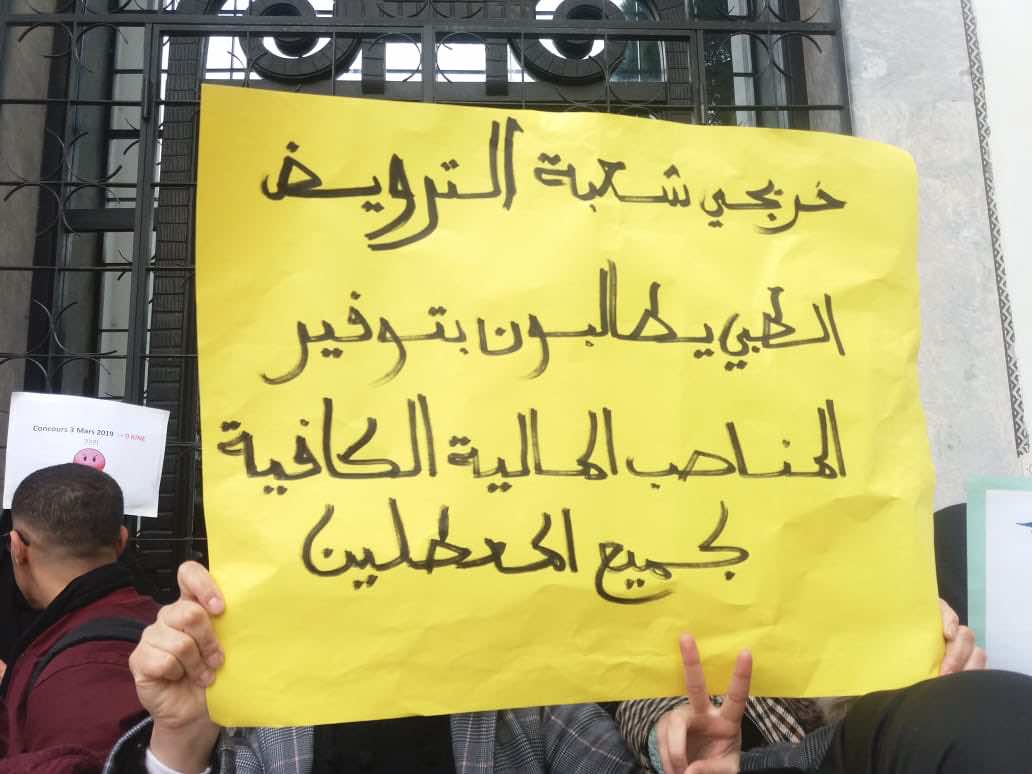 خريجي شعبة الترويض
الطبي يطالبون بتوفير
المناصب المالية الكافية
لجميع المعطلين
Concours 3 Mars 2019 → 0 KINE